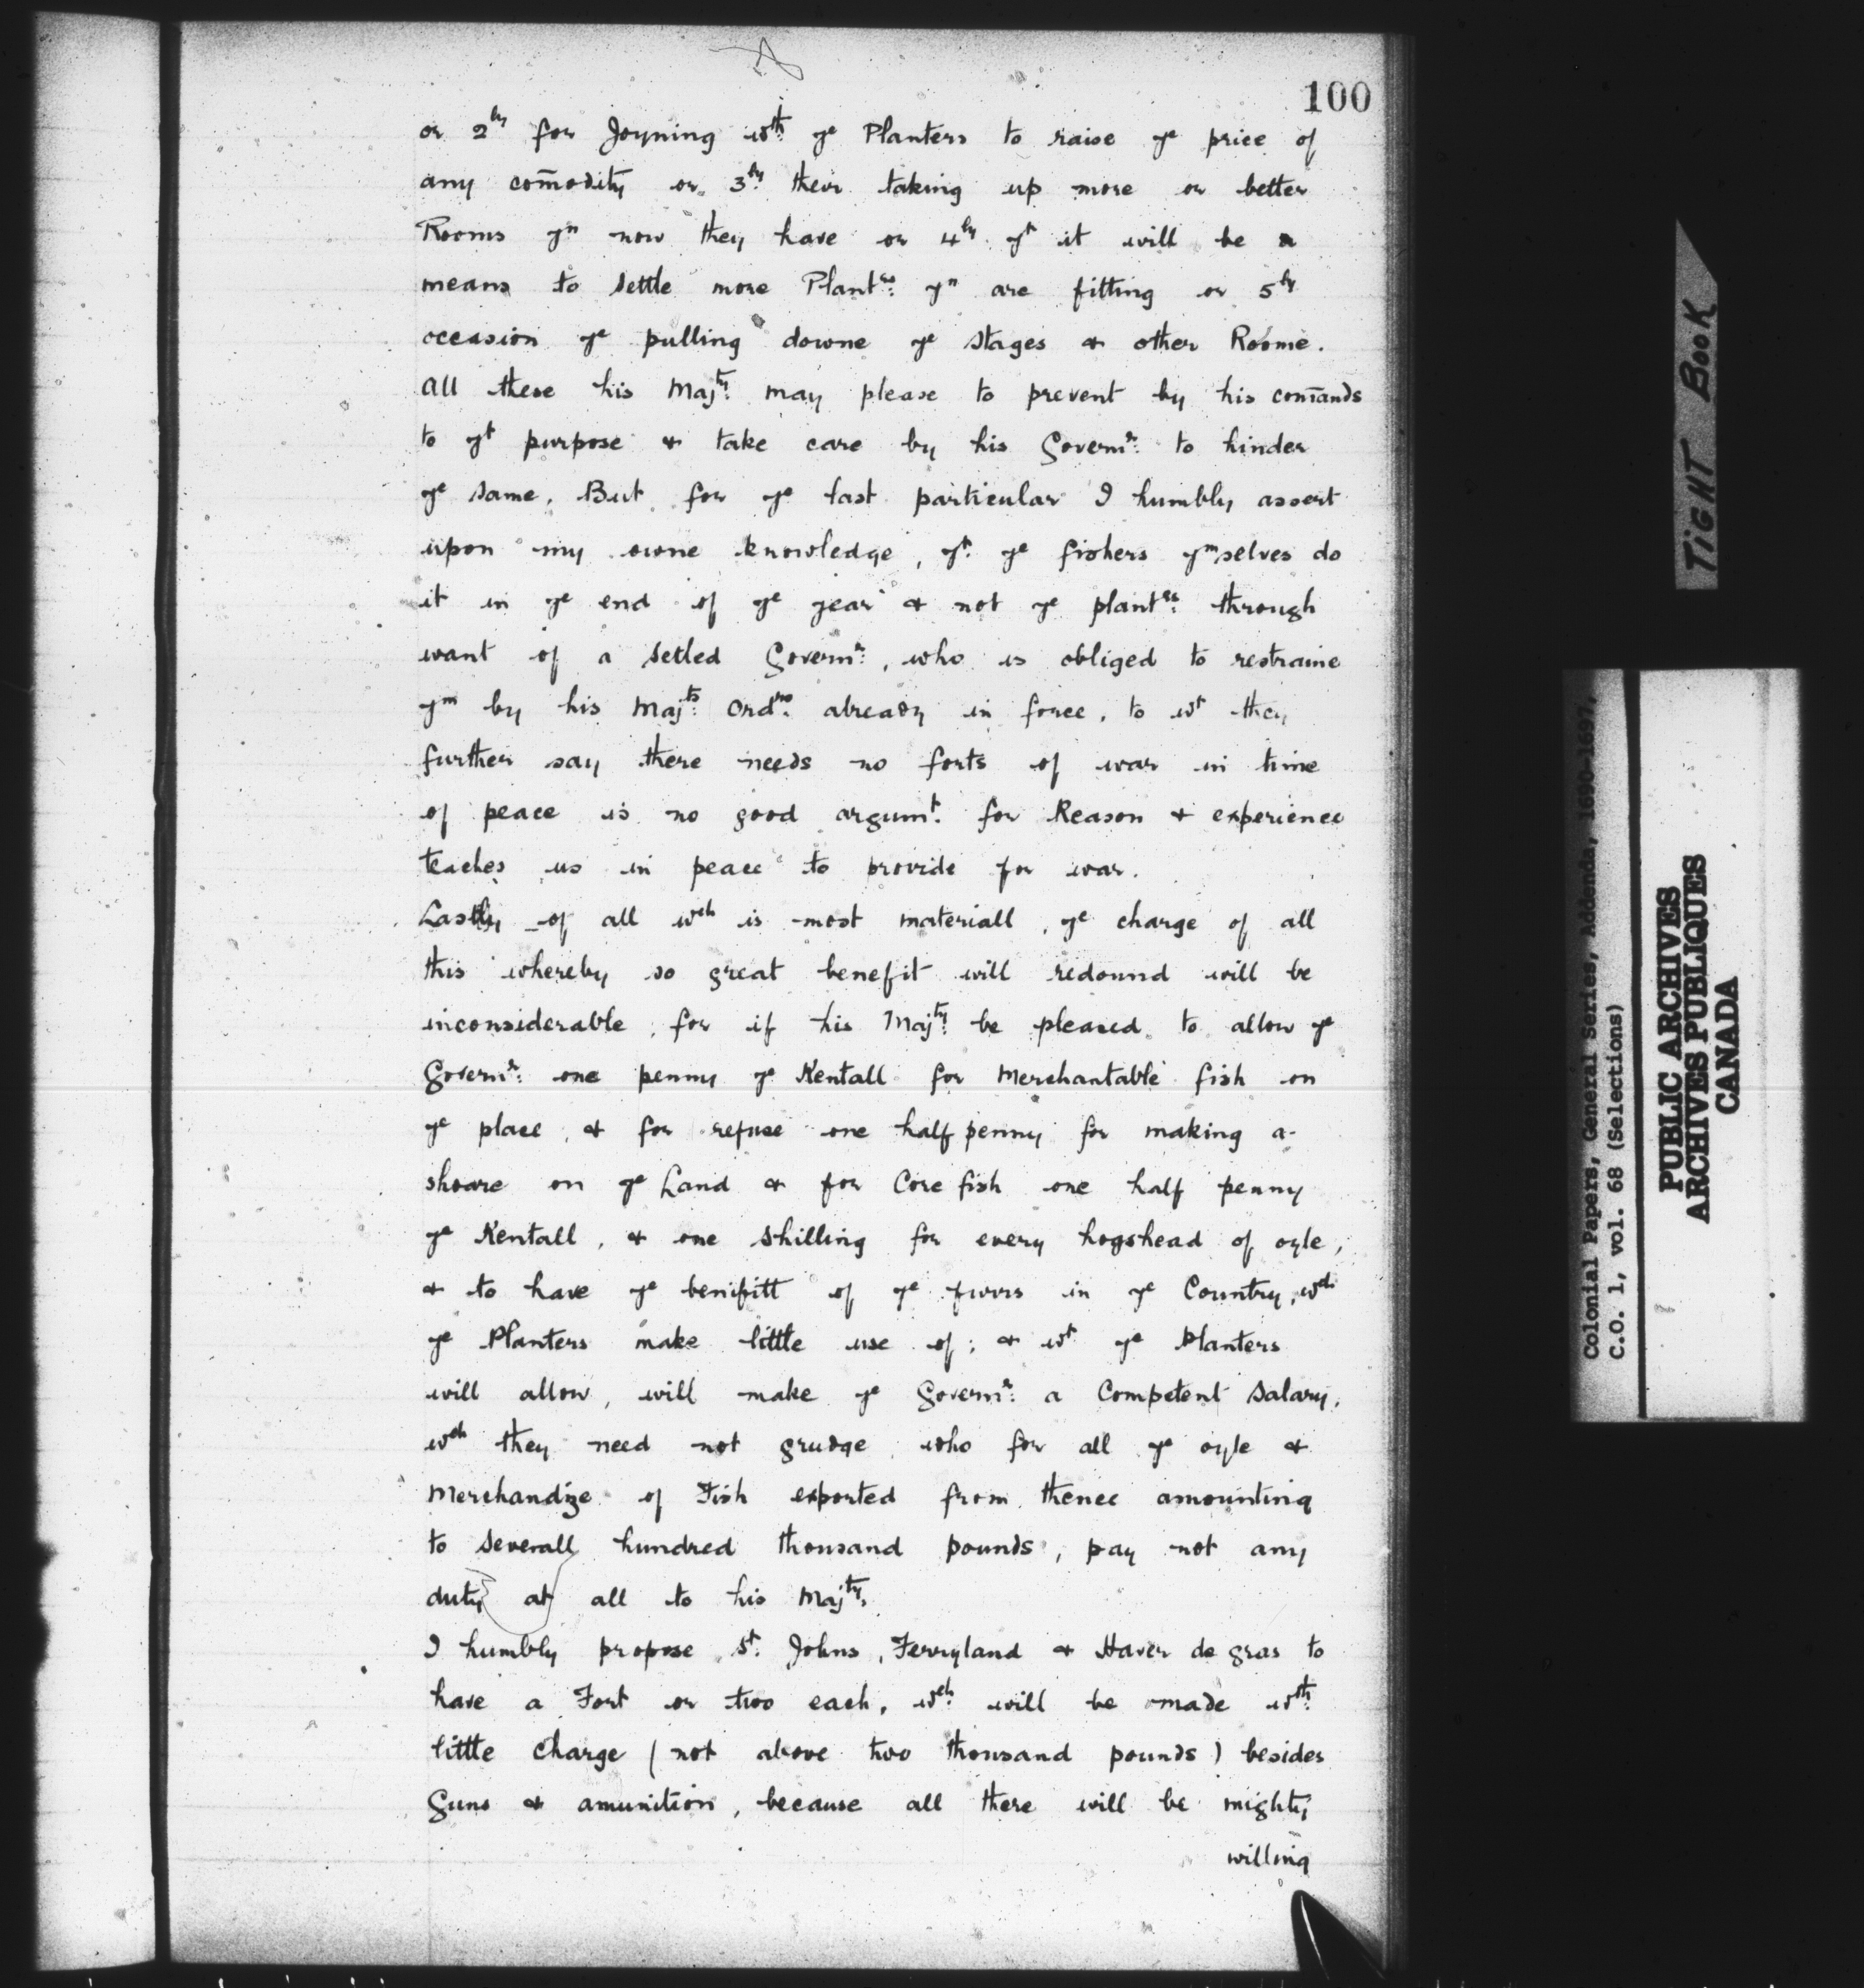 100
or 2ly for Joyning wth ye Planters to raise ye price of
any com̄odity or 3ly their taking up more or better
Rooms yn now they have or 4ly yt it will be a
means to settle more Plantrs: yn are fitting or 5ly
occasion ye pulling downe ye stages & other Roome.
All these his Majty: may please to prevent by his com̄ands
to yt purpose & take care by his Governr: to hinder
ye same. But for ye last particular I humbly assert
upon my owne knowledge, yt ye fishers ymselves do
it in ye end of ye year & not ye plantrs: through
want of a setled Governr:, who is obliged to restraine
ym by his Majts: Ordrs: already in force, to wt they
further say there needs no forts of war in time
of peace is no good argumt: for Reason & experience
teaches us in peace to provide for war.
Lastly of all wch is most materiall, ye charge of all
this whereby so great benefit will redound will be
inconsiderable, for if his Majty: be pleased to allow ye
Governr: one penny ye Kentall for Merchantable fish on
ye place, & for refuse one half penny for making a-
shoare on ye Land & for Core fish one half penny
ye Kentall, & one shilling for every hogshead of oyle,
& to have ye benifitt of ye furrs in ye Country, wch
ye Planters make little use of; & wt ye Planters
will allow, will make ye Governr: a Competent Salary,
wch they need not grudge who for all ye oyle &
Merchandize of Fish exported from thence amounting
to severall hundred thousand pounds, pay not any
duty at all to his Majty.
I humbly propose St: Johns, Ferryland & Haver de gras to
have a Fort or two each, wch: will be made wth:
little charge (not above two thousand pounds) besides
Guns & amunition, because all there will be mighty
willing
TiGHT BooK
Colonial Papers, General Series, Addenda, 1690-1697,
C.O. 1, vol. 68 (Selections)
PUBLIC ARCHIVES
ARCHIVES PUBLIQUES
CANADA